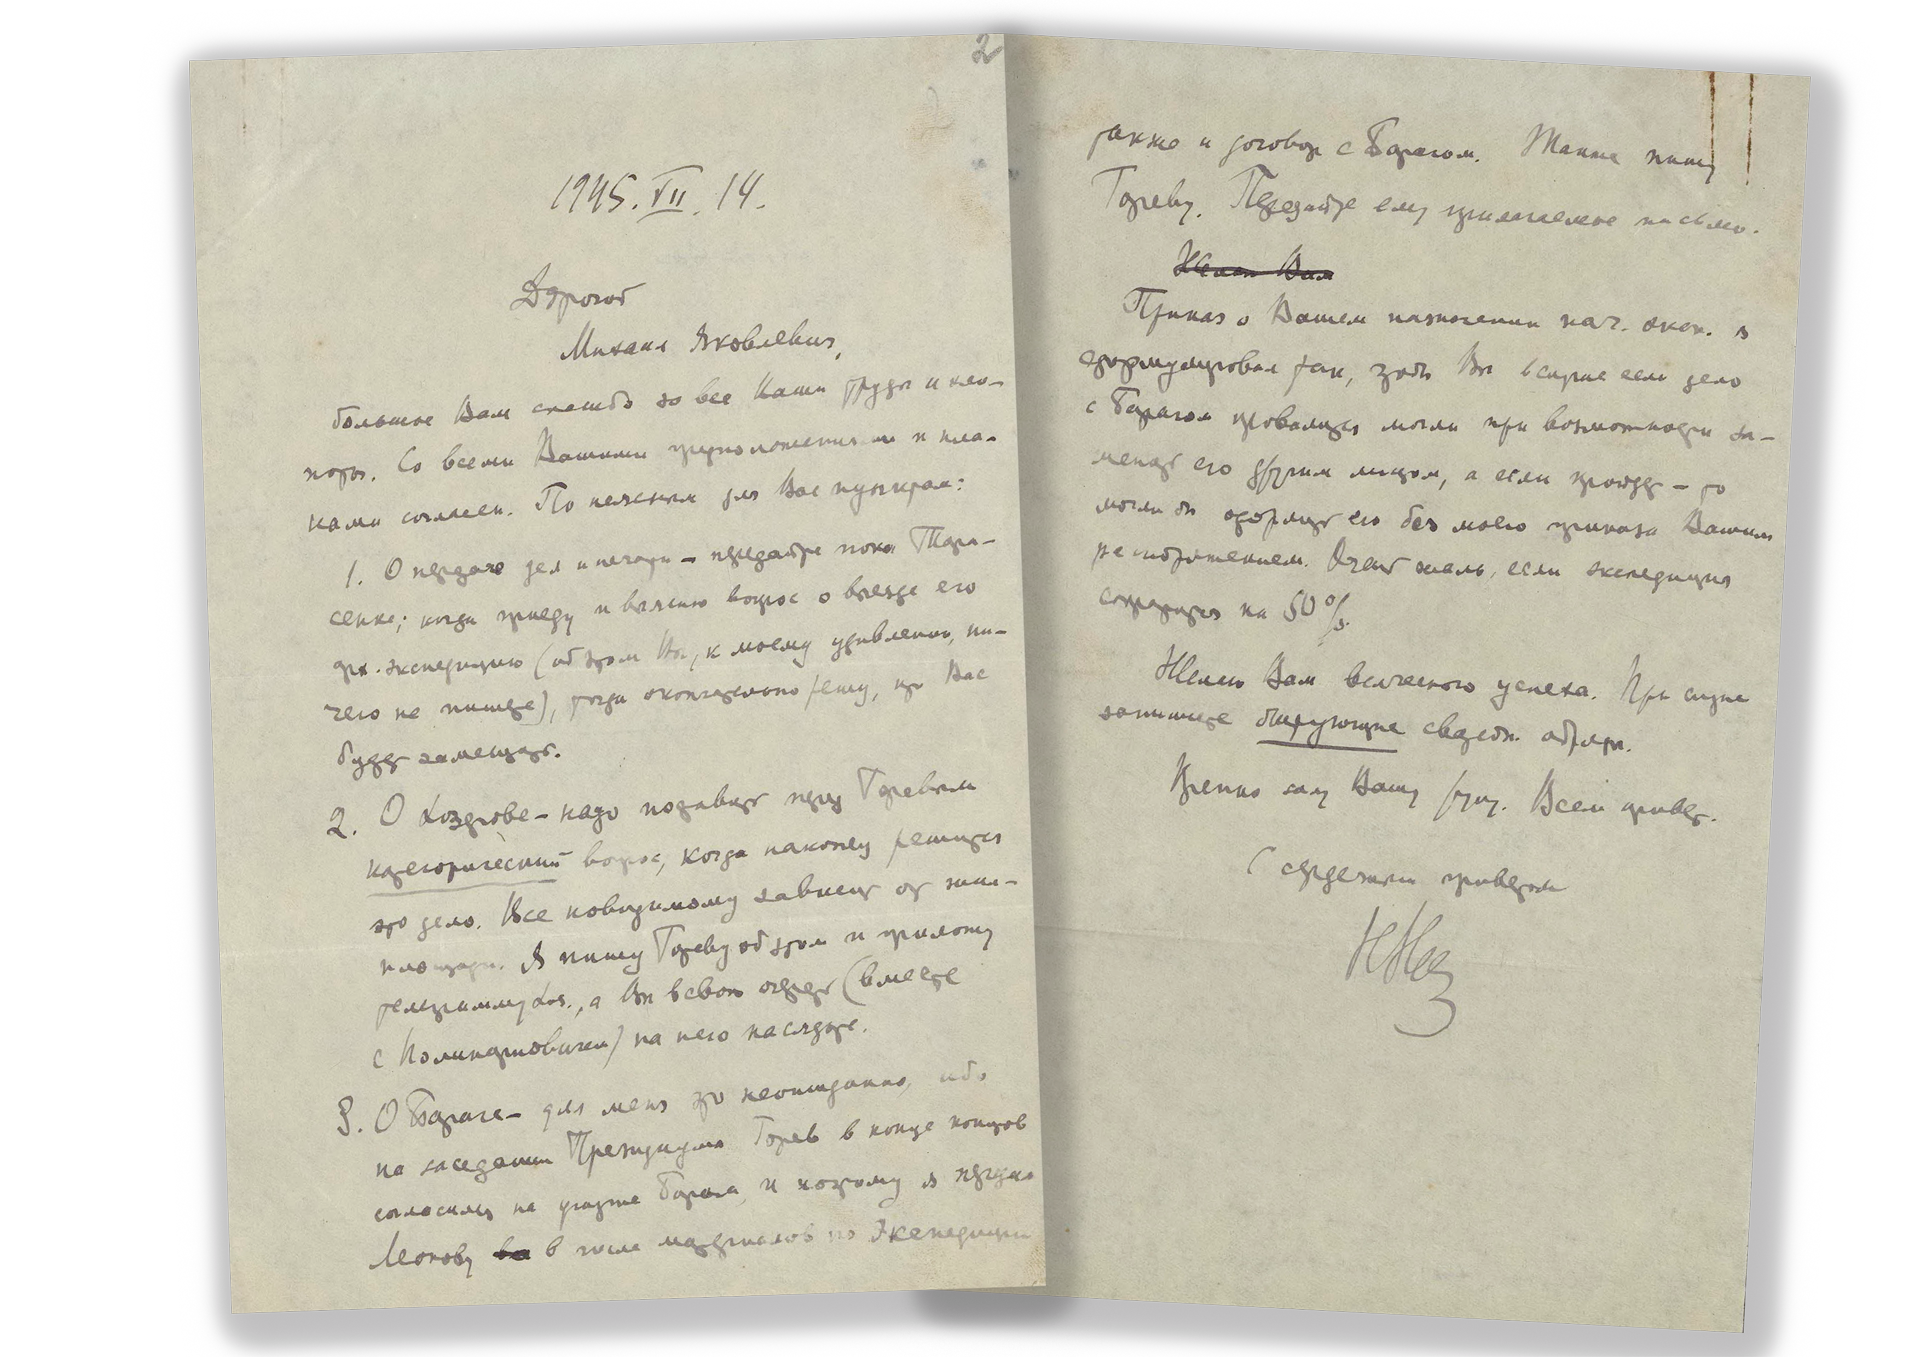 2
1945.VII.14.
Дорогой
Михаил Яковлевич,
большое Вам спасибо за все Ваши труды и кло-
поты. Со всеми Вашими предположениями и пла-
нами согласен. По неясным для Вас пунктам:
1. О передаче дел и печати – передайте пока Тара-
сенке; когда приеду и выясню вопрос о въезде его
в экспедицию (об этом Вы, к моему удивлению, ни-
чего не пишете), тогда окончательно решу, кто Вас
будет замещать.
2. О Хоздрове – надо поставить перед Горевым
категорический вопрос, когда наконец решится
это дело. Все повидимому зависит от жил-
площади. Я пишу Гореву об этом и приложу
телеграмму Хоз., а Вы в свою очередь (вместе
с ) на него насядьте.
3. О Бараге – для меня это неожиданно, ибо
на заседании Президиума Горев в конце концов
согласился на участие Барага, и потому я передал
Леонову ва в числе материалов по Экспедиции
также и договор с Барагом. Также пишу
Гореву. Передайте ему прилагаемое письмо.
Желаю Вам
Приказ о Вашем назначении нач. эксп. я
сформулировал так, чтобы Вы в случае если дело
с Барагом провалится могли при возможности за-
менить его другим лицом, а если пройдет – то
могли бы оформить его без моего приказа Вашим
распоряжением. Очень жаль, если экспедиция
сократится на 50%.
Желаю Вам всяческого успеха. При случае
запишите свадебн. обряды.
Крепко жму Вашу руку. Всем привет.
С сердечным приветом